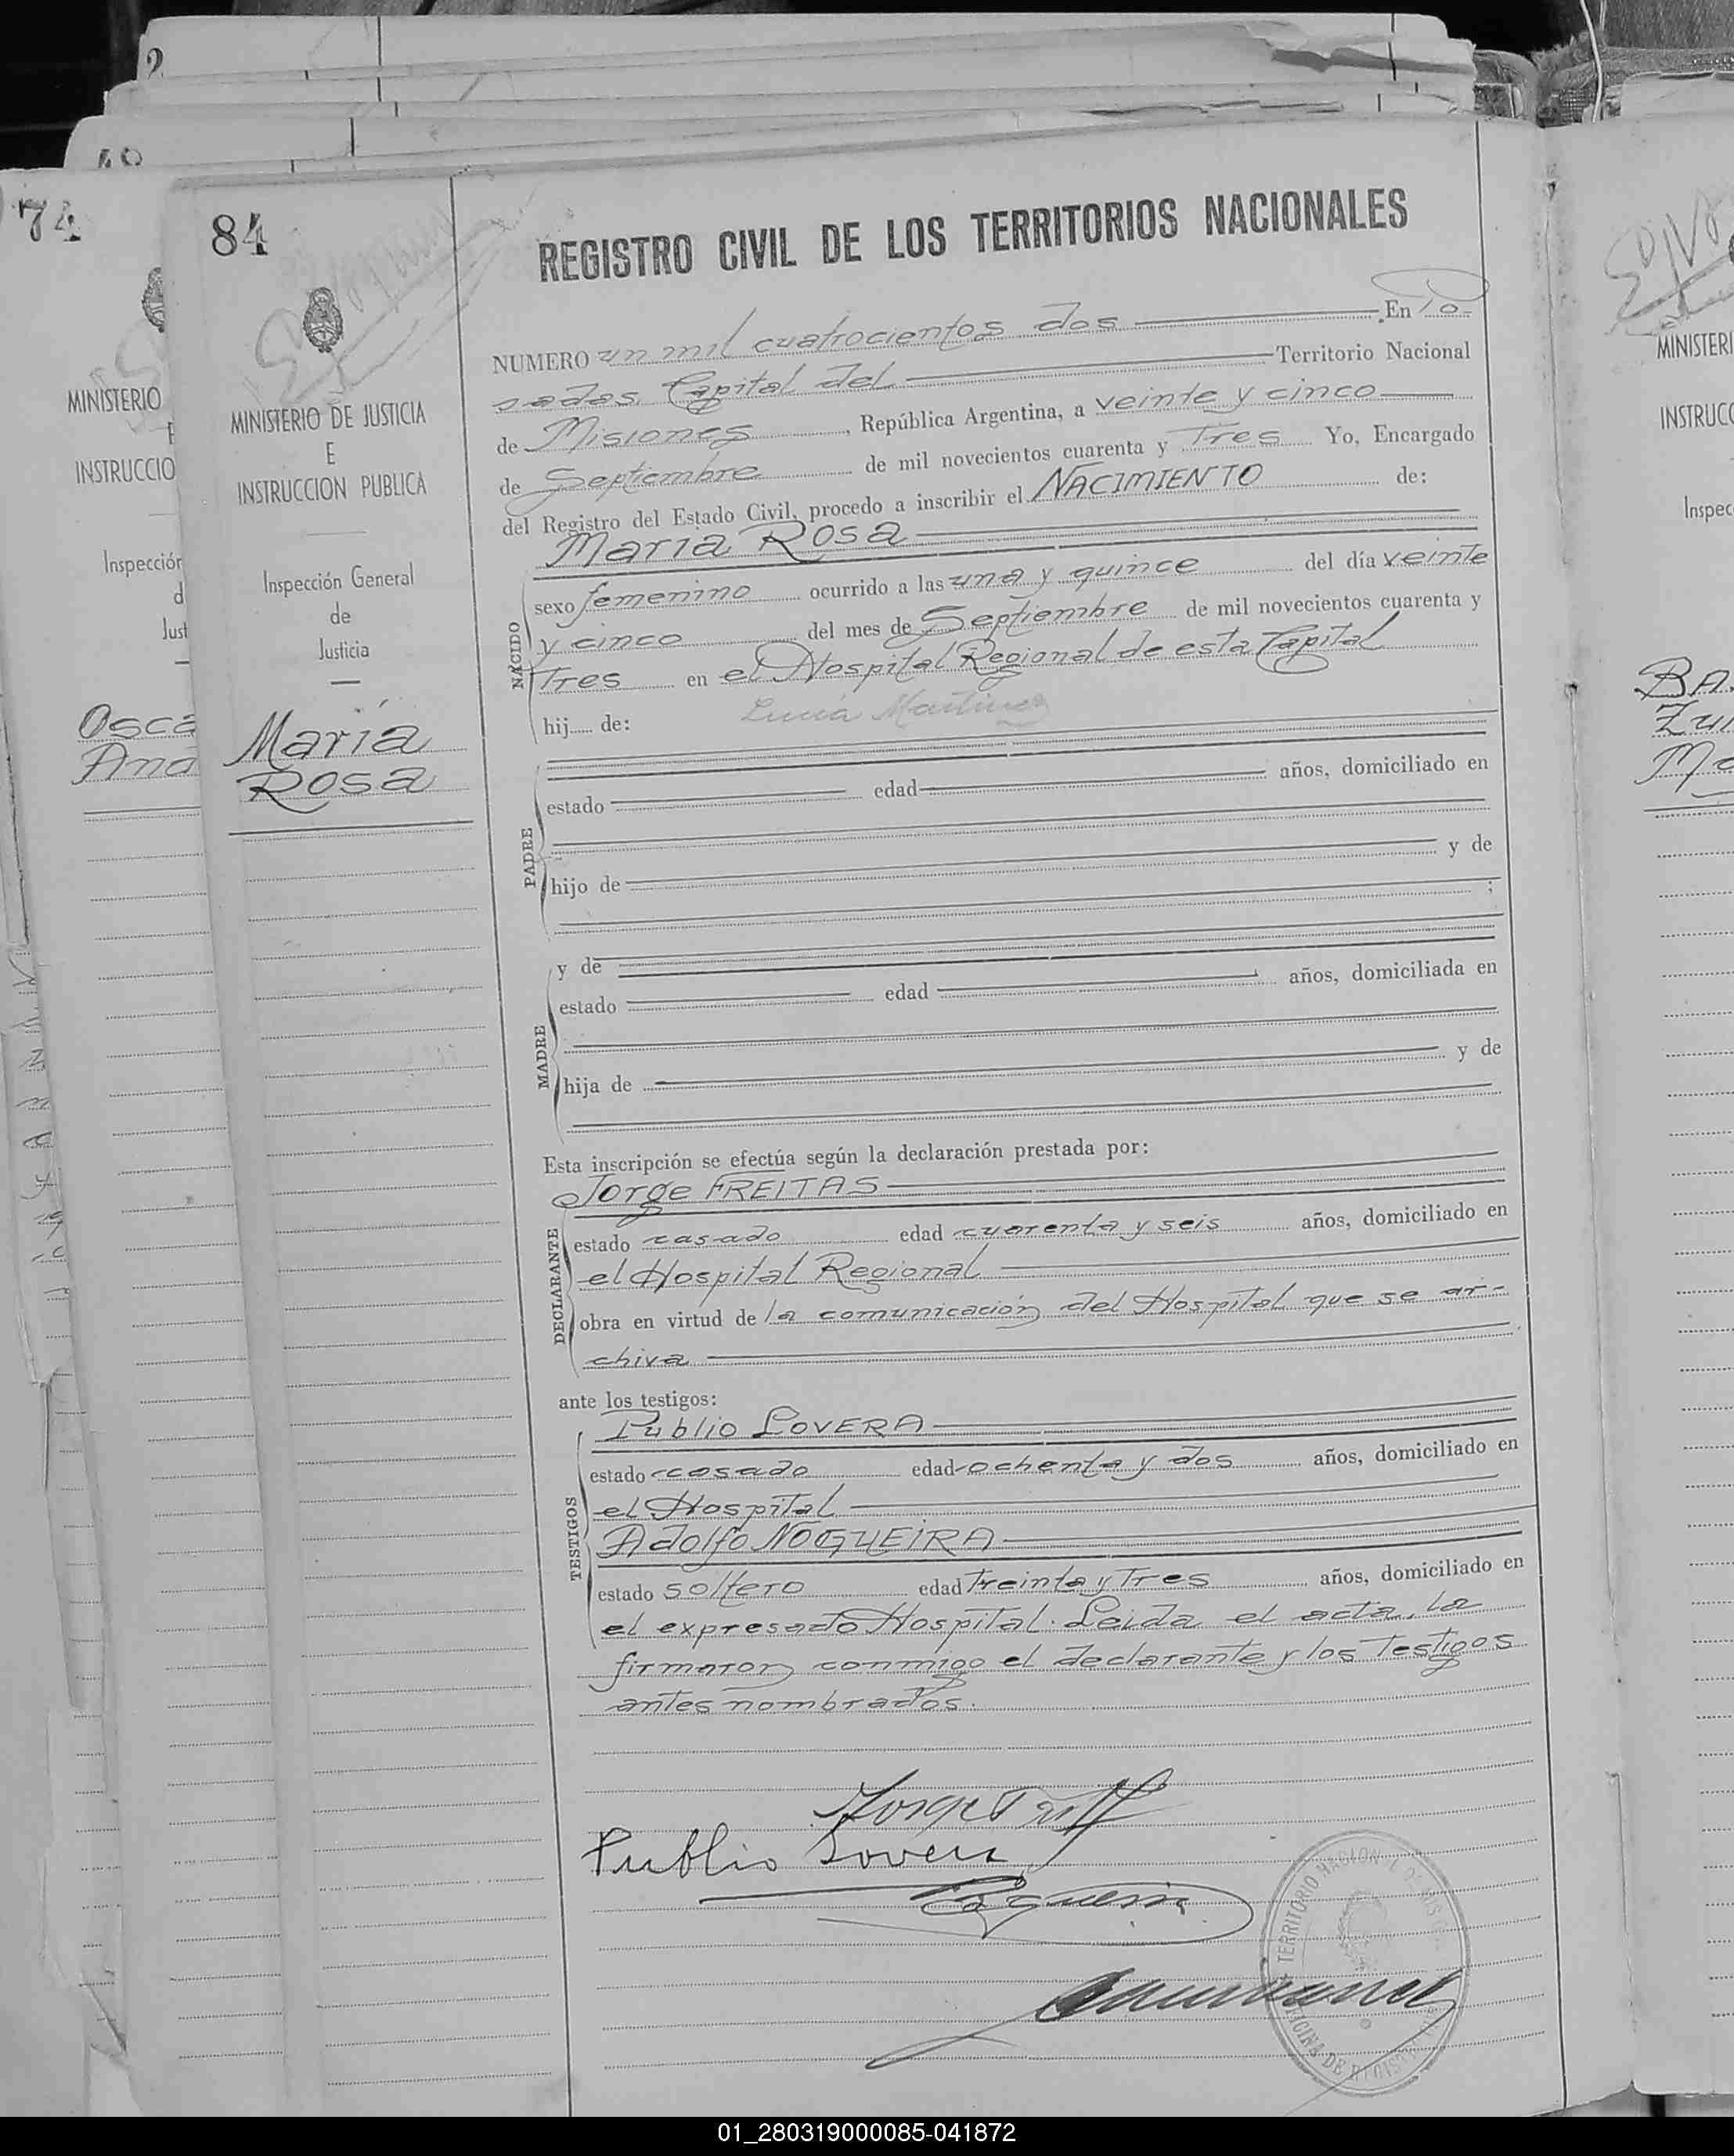 2
74
84
MINISTERIO
INSTRUCCIO
Inspección
d
Just
Osca
Ana
MINISTERIO DE JUSTICIA
E
INSTRUCCION PUBLICA
Inspección General
de
Justicia
María
Rosa
REGISTRO CIVIL DE LOS TERRITORIOS NACIONALES
NUMERO un mil cuatrocientos dos En Po-
sadas Capital del Territorio Nacional
de Misiones, República Argentina, a veinte y cinco
de Septiembre de mil novecientos cuarenta y Tres Yo, Encargado
del Registro del Estado Civil, procedo a inscribir el NACIMIENTO de:
María Rosa
NACIDO
sexo femenino ocurrido a las una y quince del día veinte
y cinco del mes de Septiembre de mil novecientos cuarenta y
Tres en el Hospital Regional de esta Capital
hij de: Lucía Martinez
PADRE
estado edad años, domiciliado en
hijo de y de
;
MADRE
y de
estado edad años, domiciliada en
hija de y de
Esta inscripción se efectúa según la declaración prestada por:
Jorge FREITAS
DECLARANTE
estado casado edad cuarenta y seis años, domiciliado en
el Hospital Regional
obra en virtud de la comunicación del Hospital que se ar-
chiva
ante los testigos:
Publio LOVERA
TESTIGOS
estado casado edad ochenta y dos años, domiciliado en
el Hospital
Adolfo NOGUEIRA
estado soltero edad Treinta y Tres años, domiciliado en
el expresado Hospital. Leida el acta, la
firmaron conmigo el declarante y los Testigos
antes nombrados.
Publio Lovera
TERRITORIO NACION
MINISTERI
INSTRUCC
Inspec
BA
01_280319000085-041872